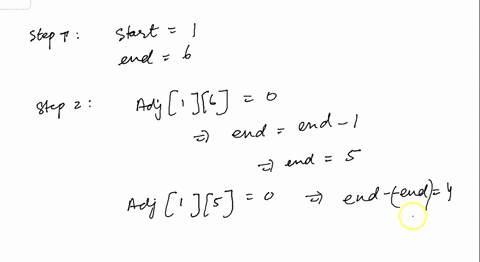 Step 1: Start = 1
end = 6
Step 2: Adj [1][6] = 0
⇒ end = end - 1
⇒ end = 5
Adj [1][5] = 0 ⇒ end-(-end) = 4